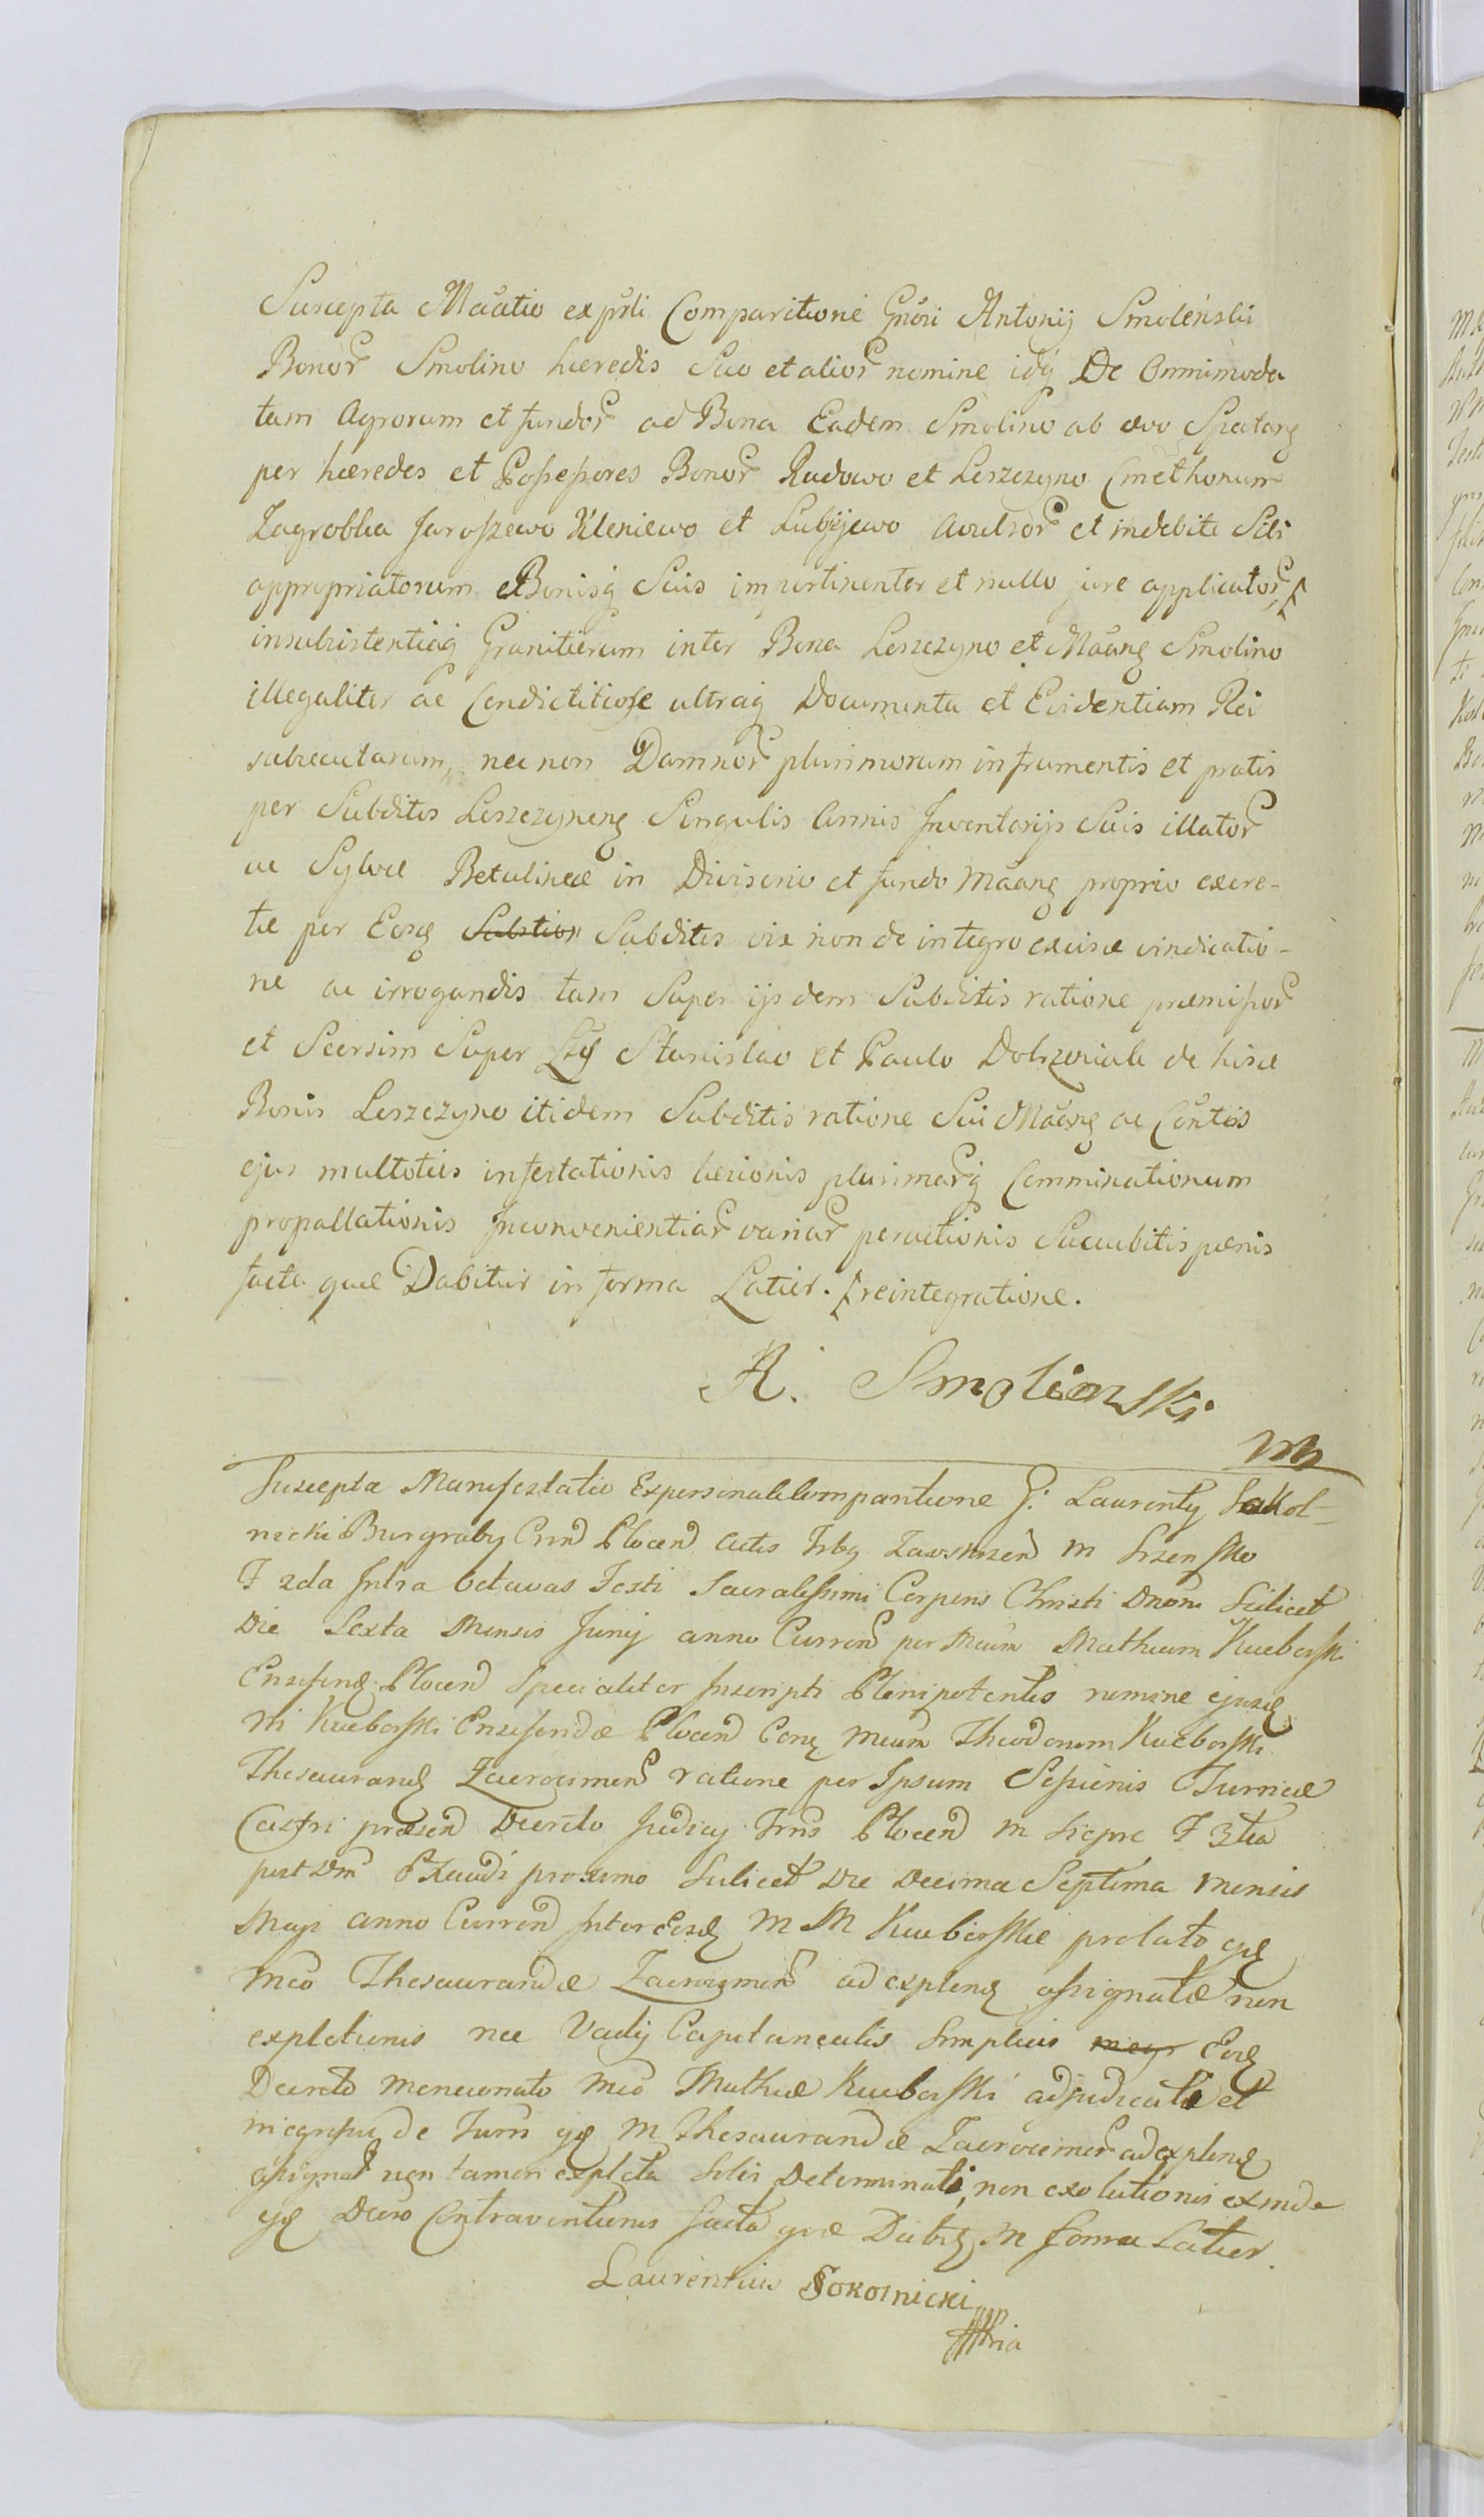 Suscepta Mãatio ex prsli Comparitione Gnõsi Antonij Smolenski
Bonor Smolino hæredis Suo et alior nomine idq De Omnimoda
tam Agrorum et fundor ad Bona Eadem Smolino ab ævo Spectan
per hæredes et Possessores Bonor Rudowo et Leszczyno Cmethonum
Zagroblea Jaroszewo Kleniewo et Lubijewo Avulsor et indebite Sibi
appropriatorum et Bonisq Suis impertinenter et nullo jure applicator
insubsistentiaq Granitierum inter Bona Leszczyno et Mãang Smolino
illegaliter ac Condictitiose ultraq Documenta et Evidentiam Rei
subsecutarum, nec non Damnor plurimorum in frumentis et pratis
per Subditos Leszczynens Singulis Annis Inventarijs Suis illator
ac Sylvæ Betulineæ in Divisorio et fundo Mãang proprio excre-
tæ per Eosd Substion Subditos vix non de integro excisæ vindicatio-
ne ac irrogandis tam Super ijsdem Subditis ratione præmissor
et Seorsim Super Stanislao et Paulo de hisce
Bonis Leszczyno itidem Subditis ratione Sui Mãang ac Contis
ejus multoties infestationis læsionis plurimarq Comminationum
propallationis Inconvenientiar variar peractionis Succubitis pænis
facta quæ Dabitur in forma Latiori. reintegratione.
A. Smolienski
mp
Suscepta Manifestatio Expersonali Comparitione G: Laurentij Sokol-
nicki Burgraby Crnd Plocen Actis Zawskrzen in Srzensko
F 2da Intra Octavas Festi Sacratissimi Corporis Christi Dnom Scilicet
Die Sexta Mensis Junij anno Curren per Mcum Matheum Kucborski
Ensiferid Plocen Specialiter Inscripti Plenipotentis nomine ejusd
Mi Kucborski Ensiferidæ Plocen Cong Mcum Theodorum Kucborski
Thesaurarid Zacrocimen ratione per Ipsum Sessionis Turricæ
Castri præsen Decreto Judicij Trns Plocen in Sieprc F 3tia
post Dm Exaudi proximo Scilicet Die Decima Septima Mensis
Maji anno Curren Inter Eosd M M Kucborskie prolato
Mco Thesauraridæ Zacrocimen ad explend assignatæ non
expletionis nec Vadij Capitanealis Simplicis Eod
Decreto Mencionato Mco Mathiæ Kucborski adjudicati et
in egressu de Turri M Thesauraridæ Zacrocimen ad explend
assignat non tamen expleta Solvi Determinati, non exolutionis exinde
Decreto Contraventionis facta quæ Dabit in forma Latior.
Laurentius Sokolnicki
mpria